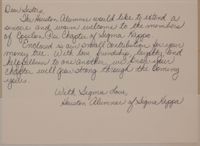 Dear Sisters,
The Houston Alumnae would like to extend a
sincere and warm welcome to the members
of Epsilon Chapter of Sigma Kappa.
Enclosed is our small contribution for your
money tree. With love, friendship, loyalty, and
helpfulness to one another, we hope your
chapter will grow strong through the coming
years.
With Sigma Love,
Houston Alumnae of Sigma Kappa